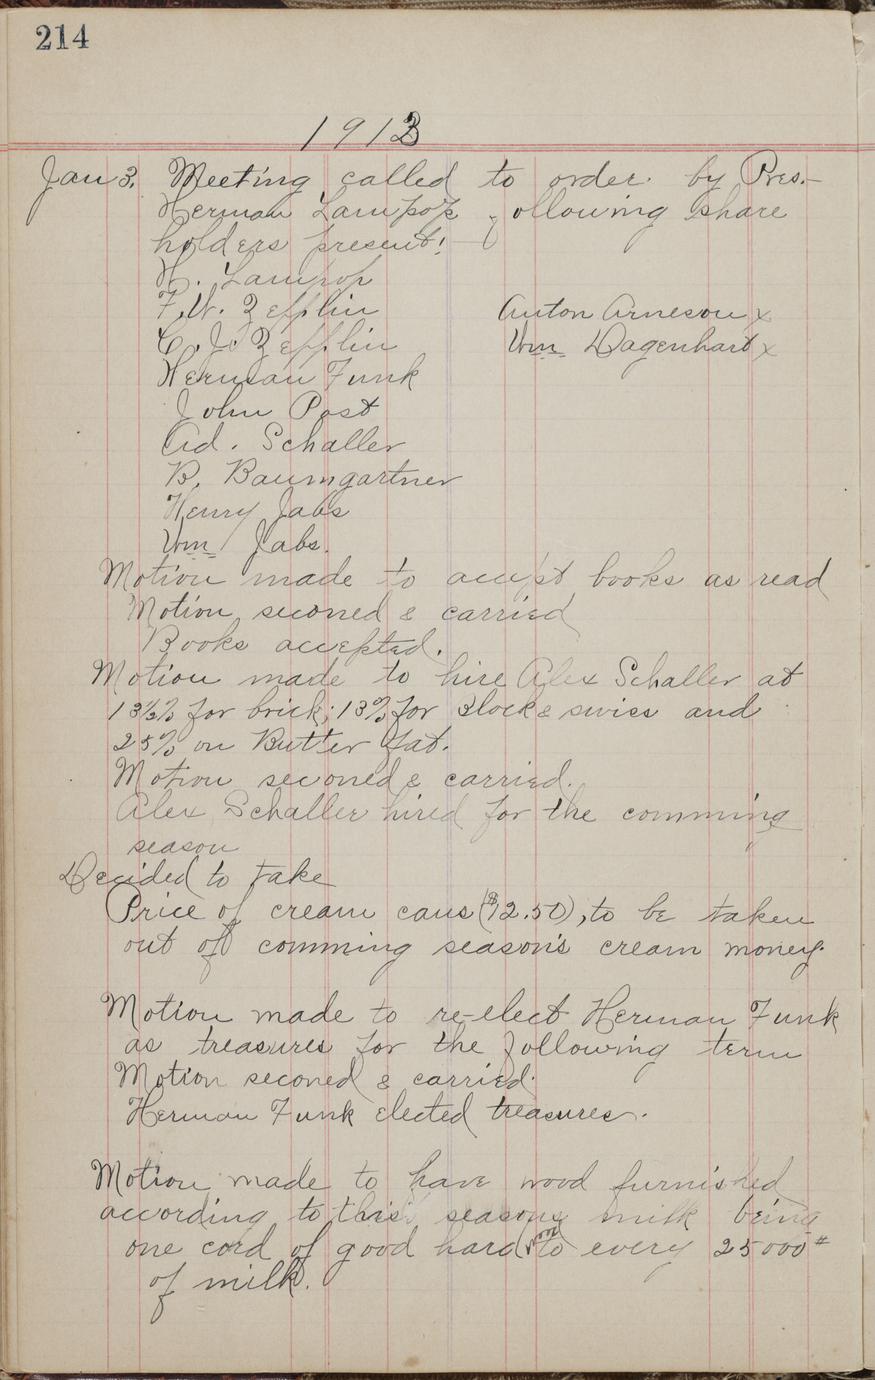 214
1913
Jan 3. Meeting called to order by Pres.-
Herman Lampop following share
holders present:-
H. Lampop
F.W. Zefflin
Anton Arneson x
C. J. Zefflin
Wm Dagenhart x
Herman Funk
John Post
Ad. Schaller
B. Baumgartner
Henry Jabs
Wm Jabs.
Motion made to accept books as read
Motion seconed & carried
Books accepted.
Motion made to hire Alex Schaller at
13½% for brick; 13% for Block & swiss and
25% on Butter fat.
Motion seconed & carried.
Alex Schaller hired for the comming
season
Decided to take
Price of cream cans ($12.50), to be taken
out of comming season's cream money.
Motion made to re-elect Herman Funk
as treasures for the following term
Motion seconed & carried.
Herman Funk elected treasures.
Motion made to have wood furnished
according to this seasons milk being
one cord of good hard wood to every 25000#
of milk.